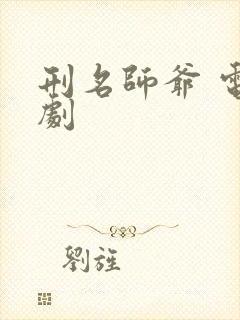 刑名師爺 電
劇
劉旌